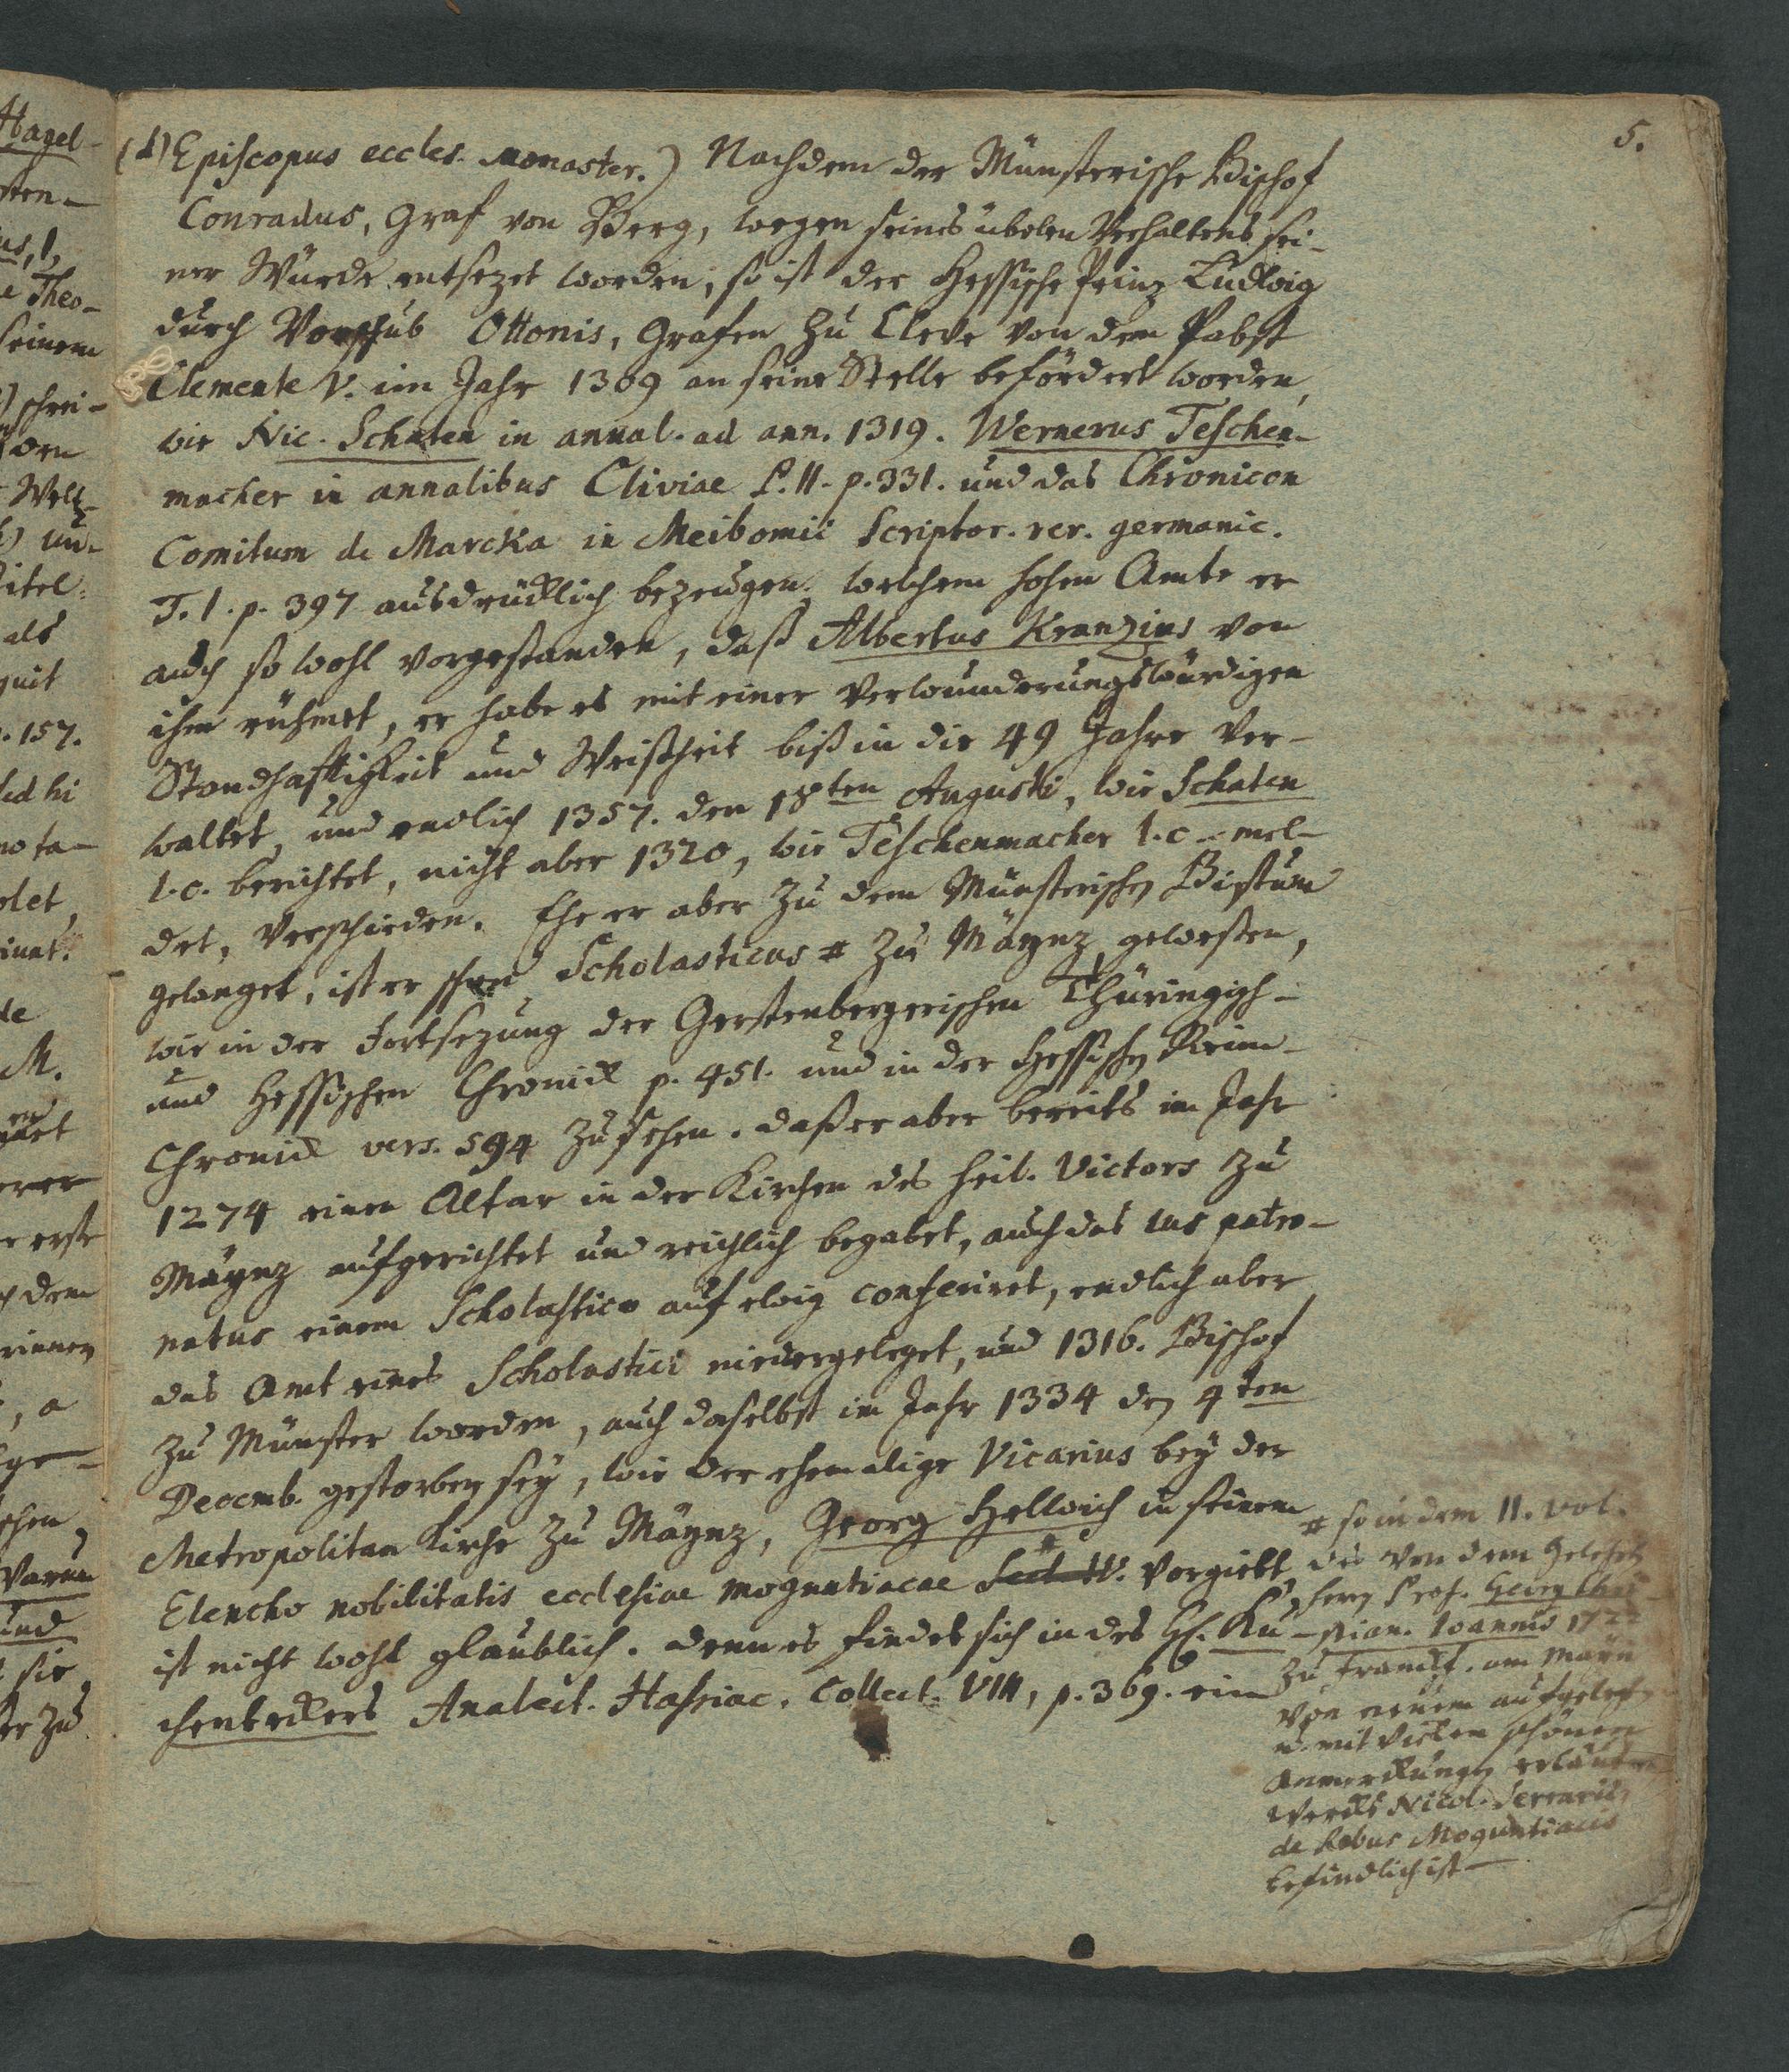 5.
(d) Episcopus eccles. Monaster.) Nachdem der Münsterische Bischof
Conradus, Graf von Berg, wegen seines übelen Verhaltens sei-
ner Würde entsezet worden; so ist der Hessische Prinz Ludwig
durch Vorschub Ottonis, Grafen zu Cleve von dem Pabst
Clemente V. im Jahr 1309 an seine Stelle befördert worden,
wie Nic. Schaten in annal. ad ann. 1319. Wernerus Teschen-
macher in annalibus Cliviae P. II. p. 331. und das Chronicon
Comitum de Marcka in Meibomii Scriptor. rer. germanic.
T. I. p. 397 ausdrücklich bezeugen, welchem hohen Amte er
auch so wohl vorgestanden, daß Albertus Kranzius von
ihm rühmet, er habe es mit einer verwunderungswürdigen
Standhafftigkeit und Weißheit biß in die 49 Jahre ver-
waltet, und endlich 1357. den 18ten Augusti, wie Schaten
l. c. berichtet, nicht aber 1320, wie Teschenmacher l. c. mel-
det, verschieden. Ehe er aber zu dem Münsterischen Bistum
gelanget, ist er schon Scholasticus # zu Mäynz gewesen,
wie in der Fortsezung der Gerstenbergerischen Thüringisch-
und Hessischen Chronick p. 451. und in der Hessischen Reim-
Chronick vers. 594 zu sehen. daß er aber bereits im Jahr
1274 einen Altar in der Kirchen des heil. Victors zu
Mäynz aufgerichtet und reichlich begabet, auch das ius patro-
natus einem Scholastico auf ewig conferiret, endlich aber
das Amt eines Scholastici niedergeleget, und 1316. Bischof
zu Münster worden, auch daselbst im Jahr 1334 den 4ten
Decemb. gestorben sey, wie der ehemalige Vicarius bey der
Metropolitan Kirche zu Mäynz, Georg Hellwich in seinem
Elencho nobilitatis ecclesiae moguntiacae # vorgiebt,
ist nicht wohl glaublich. denn es findet sich in des H. Ku-
chenbeckers Analect. Hassiac. Collect. VIII, p. 369. ein
# so in dem II. vol.
des von dem Gelehrten
Herrn Prof. Georg Chri-
stian. Ioannis 1722
zu Franckf. am Mayn
von neuem aufgelegten
u. mit vielen schönen
Anmerckungen erläuterten
Wercks Nicol. Serrarii
de Rebus Moguntiacis
befindlich ist